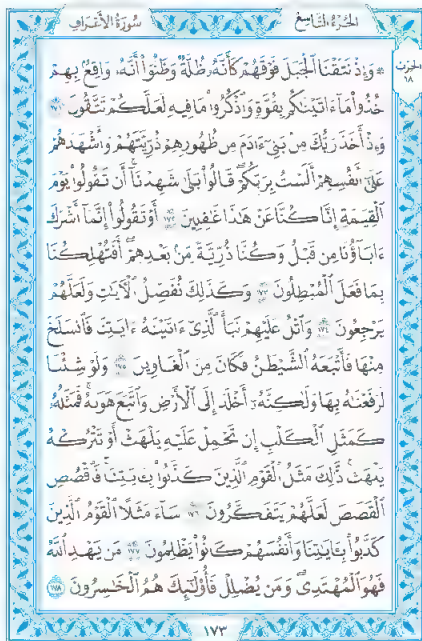 الجزء التاسع
سورة الأعراف
الحزب
١٨
۞ وَإِذْ نَتَقْنَا ٱلْجَبَلَ فَوْقَهُمْ كَأَنَّهُۥ ظُلَّةٌ وَظَنُّوٓا۟ أَنَّهُۥ وَاقِعٌۢ بِهِمْ
خُذُوا۟ مَآ ءَاتَيْنَٰكُم بِقُوَّةٍ وَٱذْكُرُوا۟ مَا فِيهِ لَعَلَّكُمْ تَتَّقُونَ ١٧١
وَإِذْ أَخَذَ رَبُّكَ مِنۢ بَنِىٓ ءَادَمَ مِن ظُهُورِهِمْ ذُرِّيَّتَهُمْ وَأَشْهَدَهُمْ
عَلَىٰٓ أَنفُسِهِمْ أَلَسْتُ بِرَبِّكُمْ ۖ قَالُوا۟ بَلَىٰ ۛ شَهِدْنَآ ۛ أَن تَقُولُوا۟ يَوْمَ
ٱلْقِيَٰمَةِ إِنَّا كُنَّا عَنْ هَٰذَا غَٰفِلِينَ ١٧٢ أَوْ تَقُولُوٓا۟ إِنَّمَآ أَشْرَكَ
ءَابَآؤُنَا مِن قَبْلُ وَكُنَّا ذُرِّيَّةً مِّنۢ بَعْدِهِمْ ۖ أَفَتُهْلِكُنَا
بِمَا فَعَلَ ٱلْمُبْطِلُونَ ١٧٣ وَكَذَٰلِكَ نُفَصِّلُ ٱلْءَايَٰتِ وَلَعَلَّهُمْ
يَرْجِعُونَ ١٧٤ وَٱتْلُ عَلَيْهِمْ نَبَأَ ٱلَّذِىٓ ءَاتَيْنَٰهُ ءَايَٰتِنَا فَٱنسَلَخَ
مِنْهَا فَأَتْبَعَهُ ٱلشَّيْطَٰنُ فَكَانَ مِنَ ٱلْغَاوِينَ ١٧٥ وَلَوْ شِئْنَا
لَرَفَعْنَٰهُ بِهَا وَلَٰكِنَّهُۥٓ أَخْلَدَ إِلَى ٱلْأَرْضِ وَٱتَّبَعَ هَوَىٰهُ ۚ فَمَثَلُهُۥ
كَمَثَلِ ٱلْكَلْبِ إِن تَحْمِلْ عَلَيْهِ يَلْهَثْ أَوْ تَتْرُكْهُ
يَلْهَث ۚ ذَّٰلِكَ مَثَلُ ٱلْقَوْمِ ٱلَّذِينَ كَذَّبُوا۟ بِـَٔايَٰتِنَا ۚ فَٱقْصُصِ
ٱلْقَصَصَ لَعَلَّهُمْ يَتَفَكَّرُونَ ١٧٦ سَآءَ مَثَلًا ٱلْقَوْمُ ٱلَّذِينَ
كَذَّبُوا۟ بِـَٔايَٰتِنَا وَأَنفُسَهُمْ كَانُوا۟ يَظْلِمُونَ ١٧٧ مَن يَهْدِ ٱللَّهُ
فَهُوَ ٱلْمُهْتَدِى ۖ وَمَن يُضْلِلْ فَأُو۟لَٰٓئِكَ هُمُ ٱلْخَٰسِرُونَ ١٧٨
١٧٣